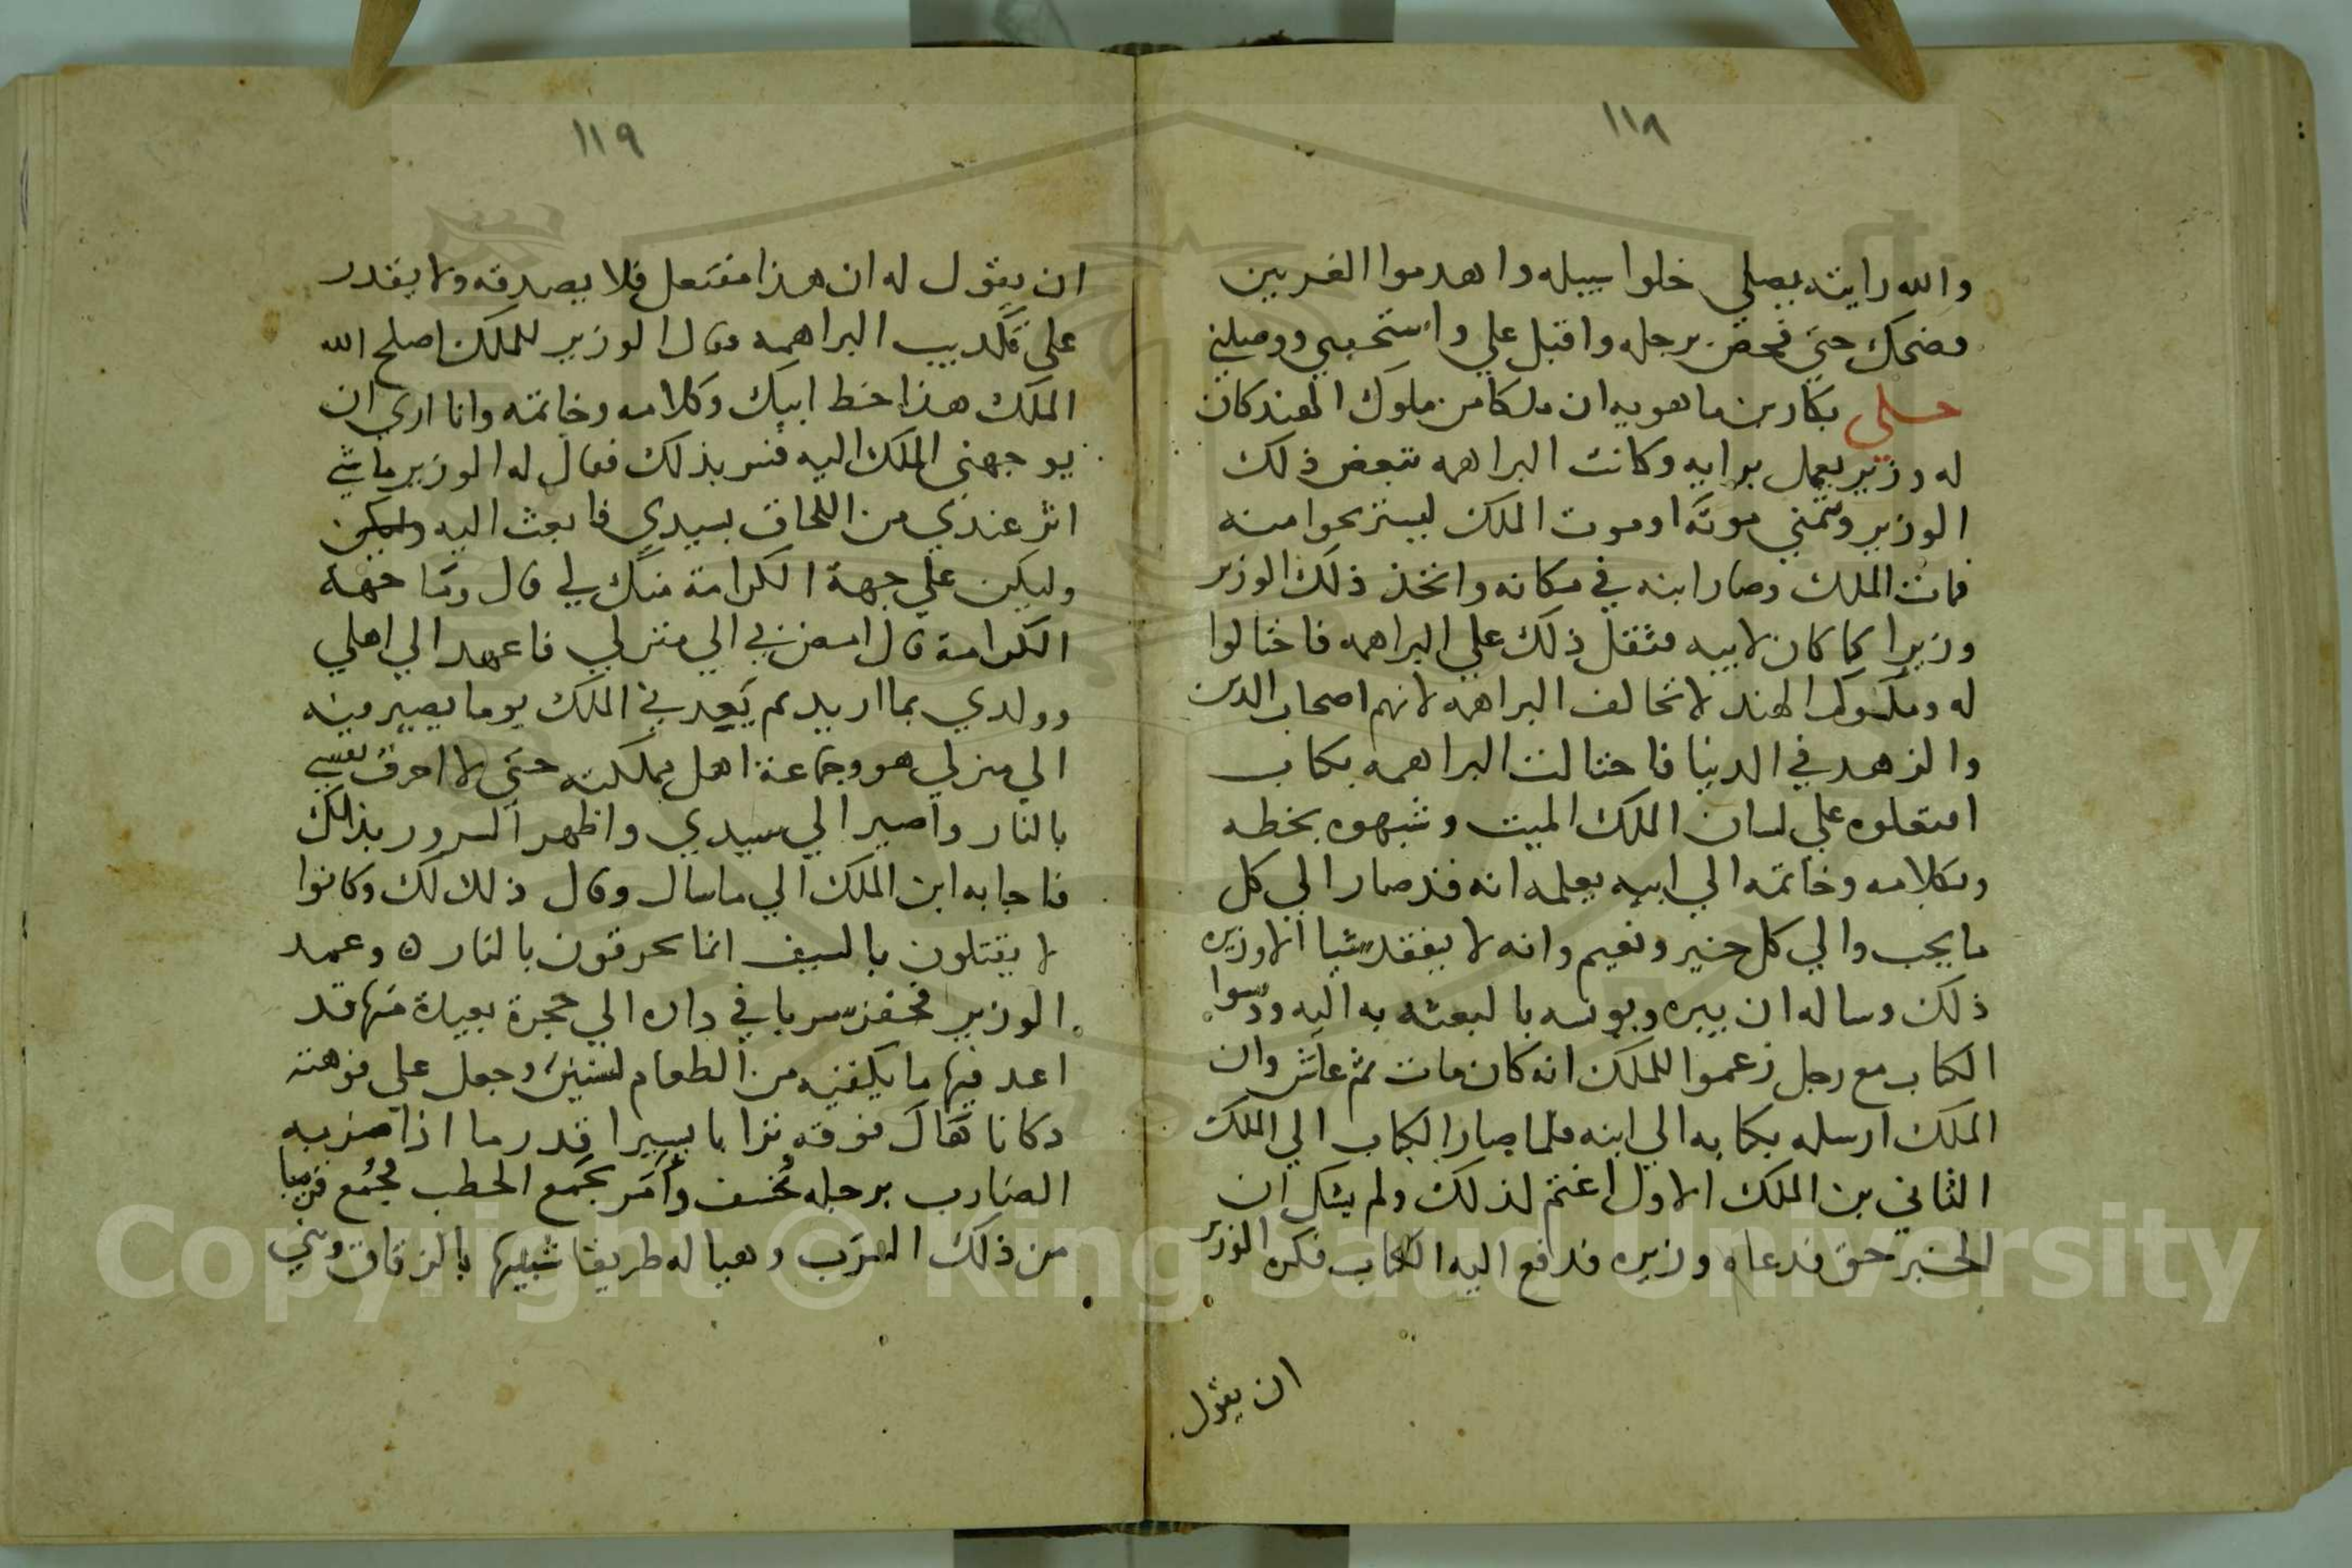 ١١٨
والله رايته يصلي خلوا سبيله واهدموا الغريين
فضحك حتي فحص برجله واقبل علي واستحبني ووصلني
حكي بكار بن ماهويه ان ملكا من ملوك الهند كان
له وزير يعمل برايه وكانت البراهمه تبغض ذلك
الوزير وتتمني موته او موت الملك ليستريحوا منه
فمات الملك وصار ابنه في مكانه واتخذ ذلك الوزير
وزيرا كما كان لابيه فثقل ذلك علي البراهمه فاحتالوا
له وملوك الهند لا تخالف البراهمه لانهم اصحاب الدين
والزهد في الدنيا فاحتالت البراهمه بكتاب
افتعلوه علي لسان الملك الميت وشبهوه بخطه
وبكلامه وخاتمه الي ابنه يعلمه انه قد صار الي كل
ما يحب والي كل خير ونعيم وانه لا يفقد شيا الا وزيره
ذلك وساله ان يبره ويونسه بالبعثه به اليه ودسوا
الكتاب مع رجل زعموا للملك انه كان مات ثم عاش وان
الملك ارسله بكتابه الي ابنه فلما صار الكتاب الي الملك
الثاني بن الملك الاول اغتم لذلك ولم يشك ان
الخبر حق فدعاه وزيره فدفع اليه الكتاب فكره الوزير
ان يقول
١١٩
ان يقول له ان هذا مفتعل فلا يصدقه ولا يقدر
علي تكذيب البراهمه فقال الوزير للملك اصلح الله
الملك هذا خط ابيك وكلامه وخاتمه وانا اري ان
يوجهني الملك اليه فسر بذلك فقال له الوزير ما شي
اثر عندي من اللحاق بسيدي فابعث اليه وليكن
وليكن علي جهة الكرامة منك لي قال وما جهة
الكرامة قال امضيني الي منزلي فاعهد الي اهلي
وولدي بما اريد ثم يعدني الملك يوما يصير فيه
الي منزلي هو وجماعة اهل مملكته حتي لا احرق نفسي
بالنار واصير الي سيدي واظهر السرور بذلك
فاجابه ابن الملك الي ما سال وقال ذلك لك وكانوا
لا يقتلون بالسيف انما يحرقون بالنار ه وعمد
الوزير فحفر سربا في داره الي حجرة بعيدة منها قد
اعد فيها ما يكفيه من الطعام لسنين وجعل علي فوهته
دكانا هال فوقه ترابا يسيرا قدر ما اذا ضربه
الضارب برجله تخسف وامر بجمع الحطب فجمع قريبا
من ذلك السرب وهيا له طريقا شبيها بالزقاق وبني